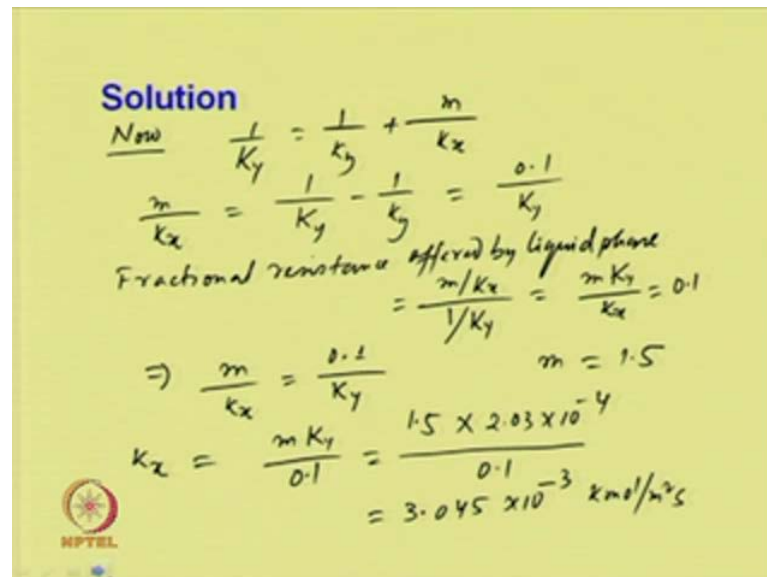 Solution
Now 1/Ky = 1/ky + m/kx
m/kx = 1/Ky - 1/ky = 0.1/Ky
Fractional resistance offered by liquid phase
= (m/kx)/(1/Ky) = mKy/kx = 0.1
⇒ m/kx = 0.1/Ky m = 1.5
kx = mKy/0.1 = (1.5 × 2.03×10⁻⁴)/0.1
= 3.045 ×10⁻³ kmol/m²s
NPTEL